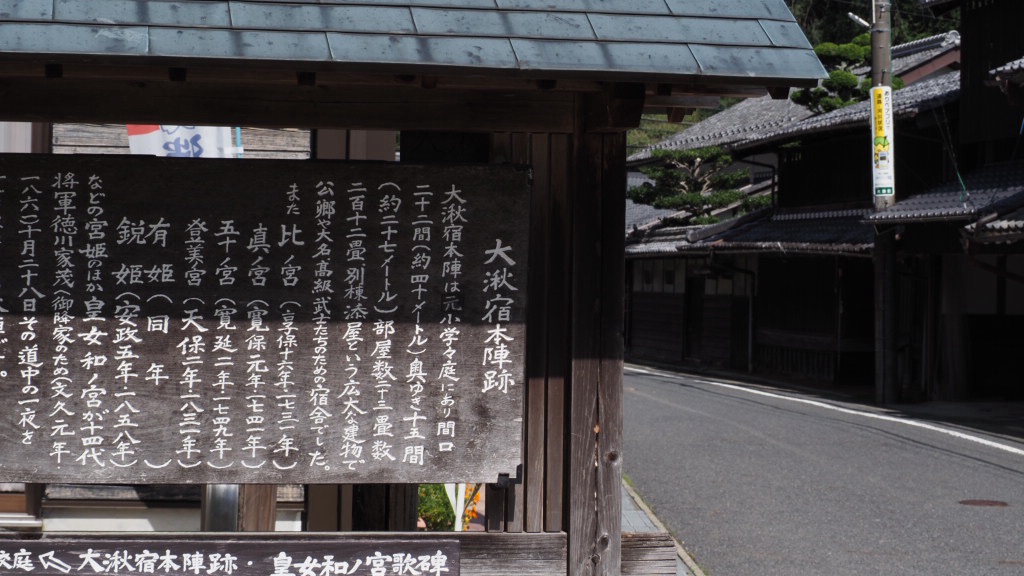 大湫宿本陣跡
大湫宿本陣は元小学々庭にあり間口
二十二間(約四十メートル)奥ゆき十五間
(約二十七メートル)部屋数二十三畳数
二百十二畳別棟添屋という広大な建物で
公卿や大名高級武士たちのための宿舎でした。
また 比ノ宮(享保十六年・一七三一年)
真ノ宮(寛保元年・一七四一年)
五十ノ宮(寛延二年・一七四九年)
登美宮(天保二年・一八三一年)
有姫(同年)
鋭姫(安政五年・一八五八年)
などの宮姫のほか皇女和ノ宮が十四代
将軍徳川家茂へ御降家のため(文久元年・
一八六一)十月二十八日その道中の一夜を
校庭 大湫宿本陣跡・皇女和ノ宮歌碑